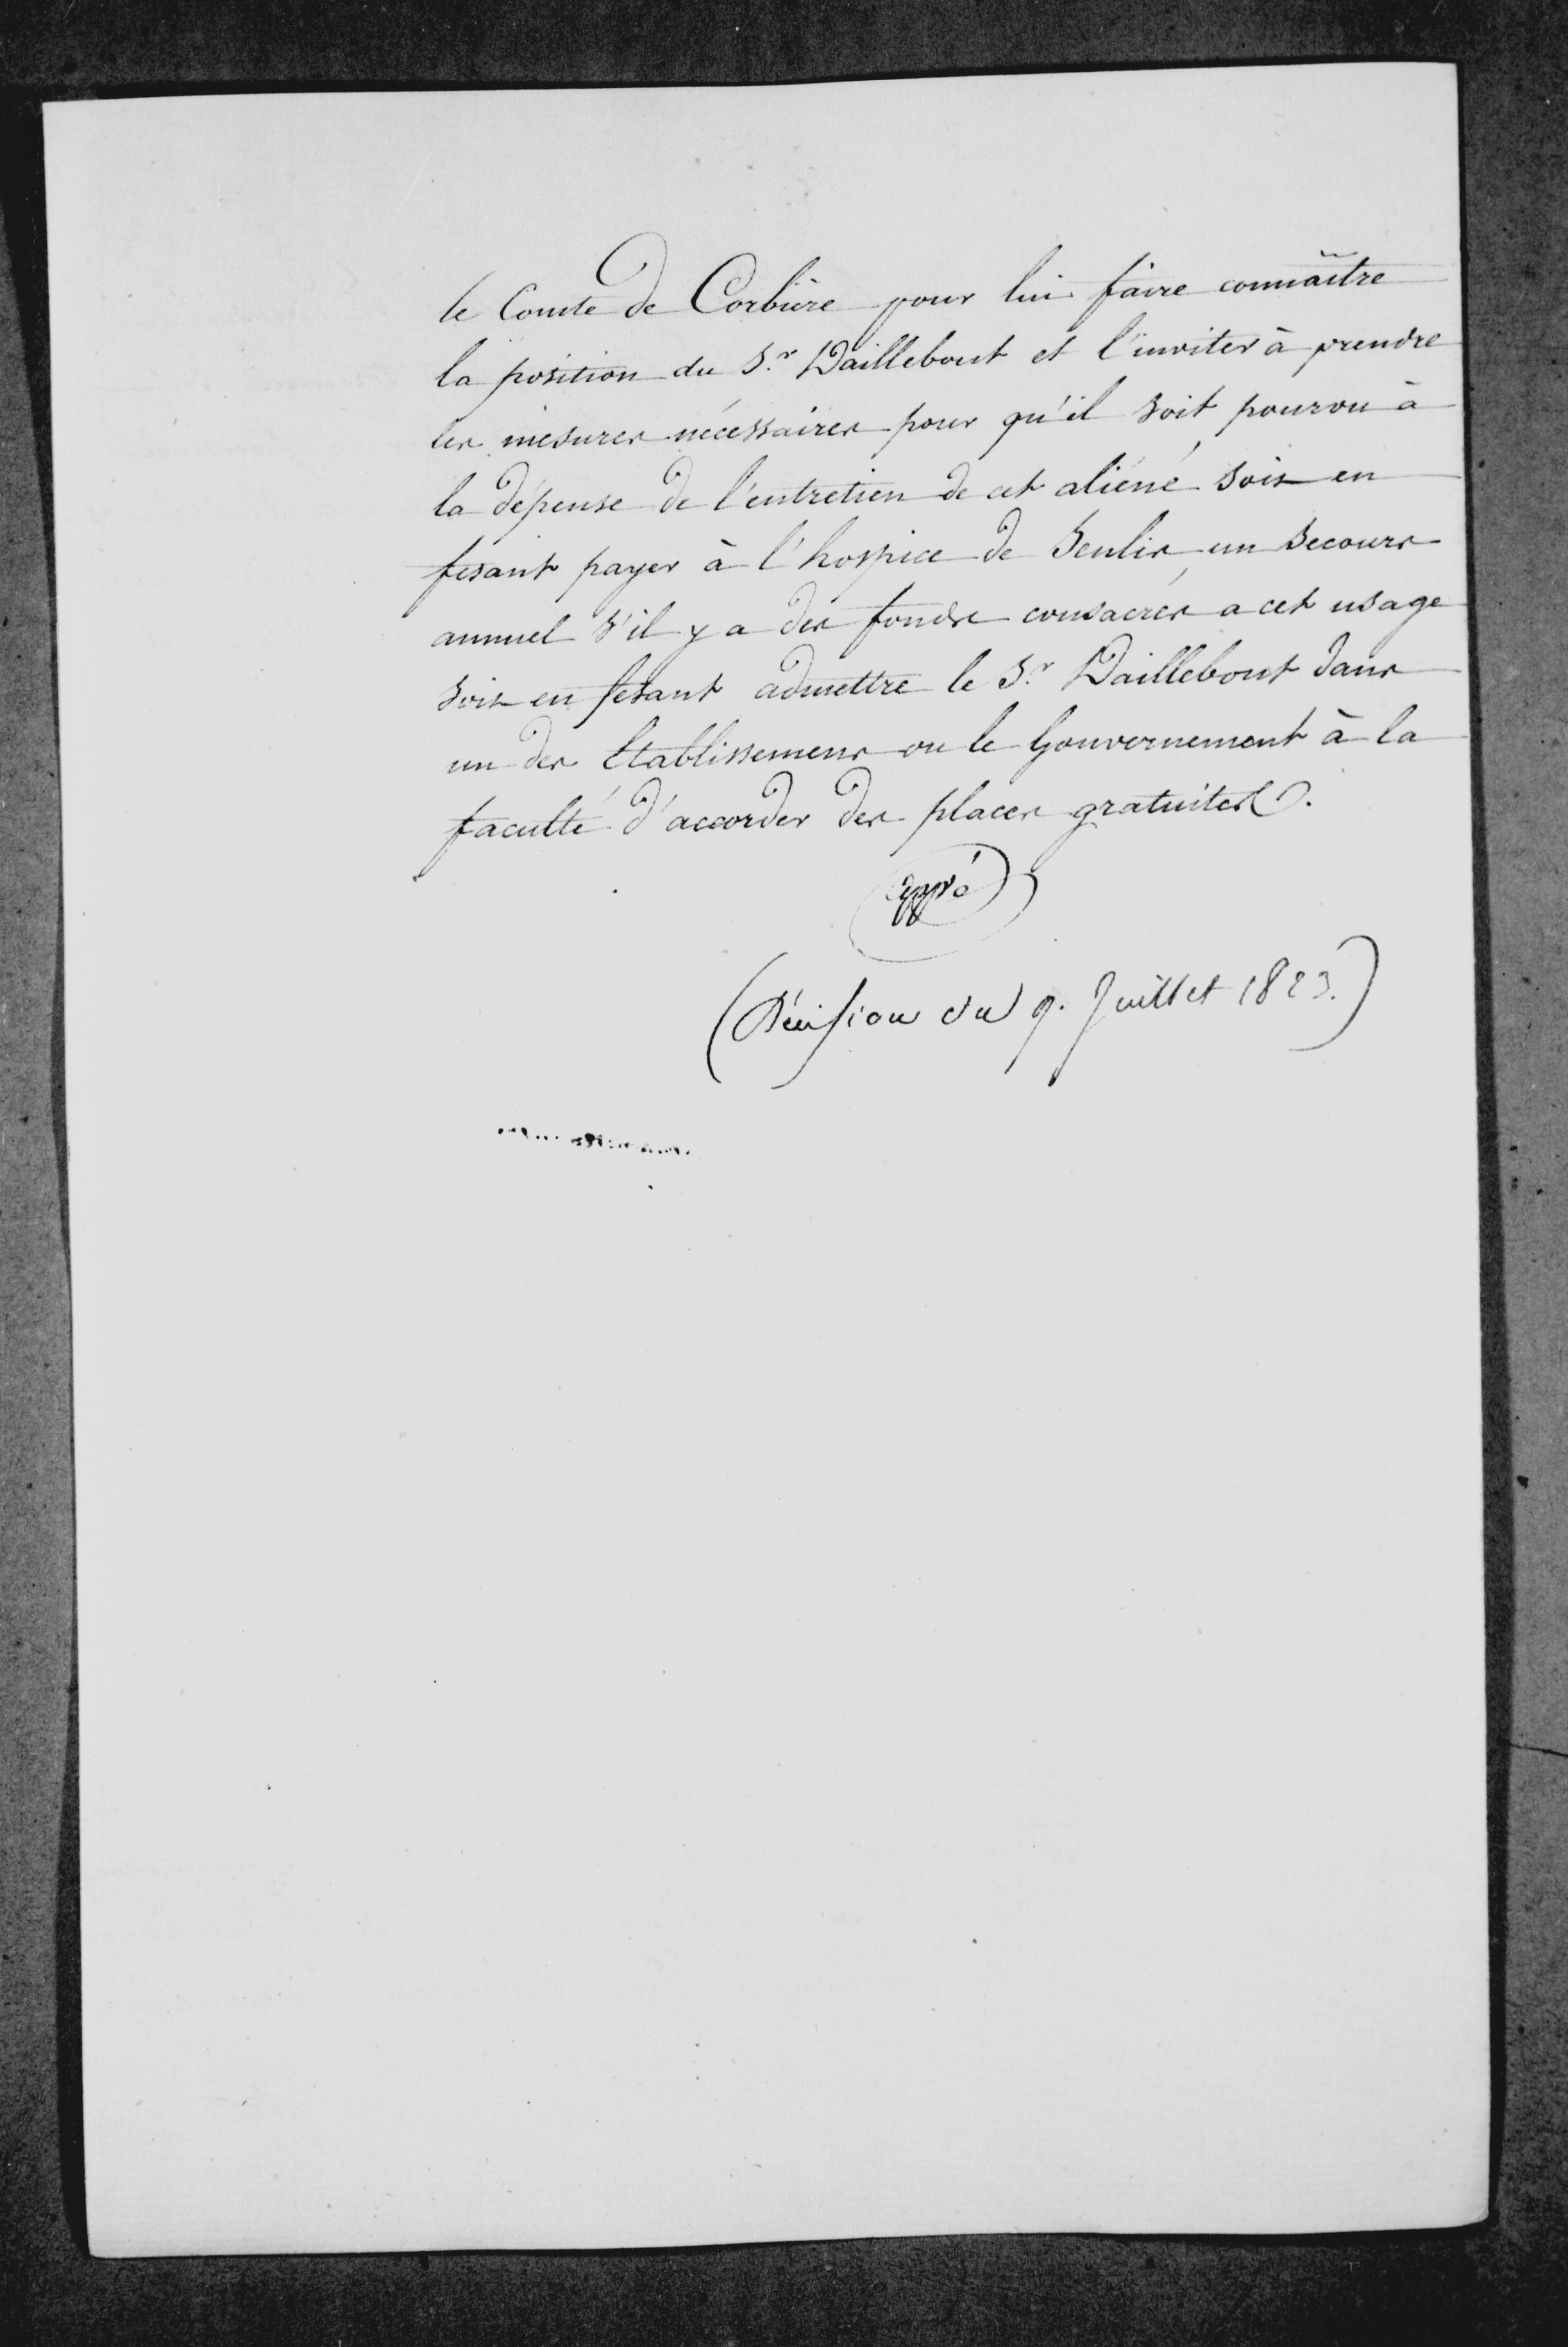 le Comte de Corbière pour lui faire connaître
la position du S.r Daillebout et l'inviter à prendre
les mesures nécessaires pour qu'il soit pourvu à
la dépense de l'entretien de cet aliéné soit en
fesant payer à l'hospice de Senlis un secours
annuel s'il y a des fonds consacrés a cet usage
soit en fesant admettre le S.r Daillebout dans
un des Etablissemens ou le Gouvernement à la
faculté d'accorder des places gratuites.
appvé
(Décision du 9. Juillet 1823.)